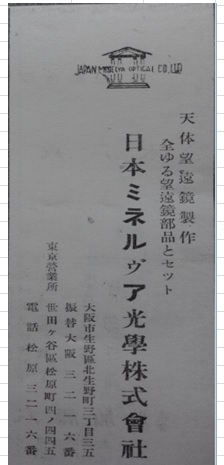 JAPAN MINERVA OPTICAL CO. LTD
天体望遠鏡製作
全ゆる望遠鏡部品とセット
日本ミネルヴア光學株式會社
大阪市生野區北生野町三丁目三五
振替大阪三二一六番
東京営業所
世田ヶ谷區松原町四ノ四四五
電話松原三二一六番